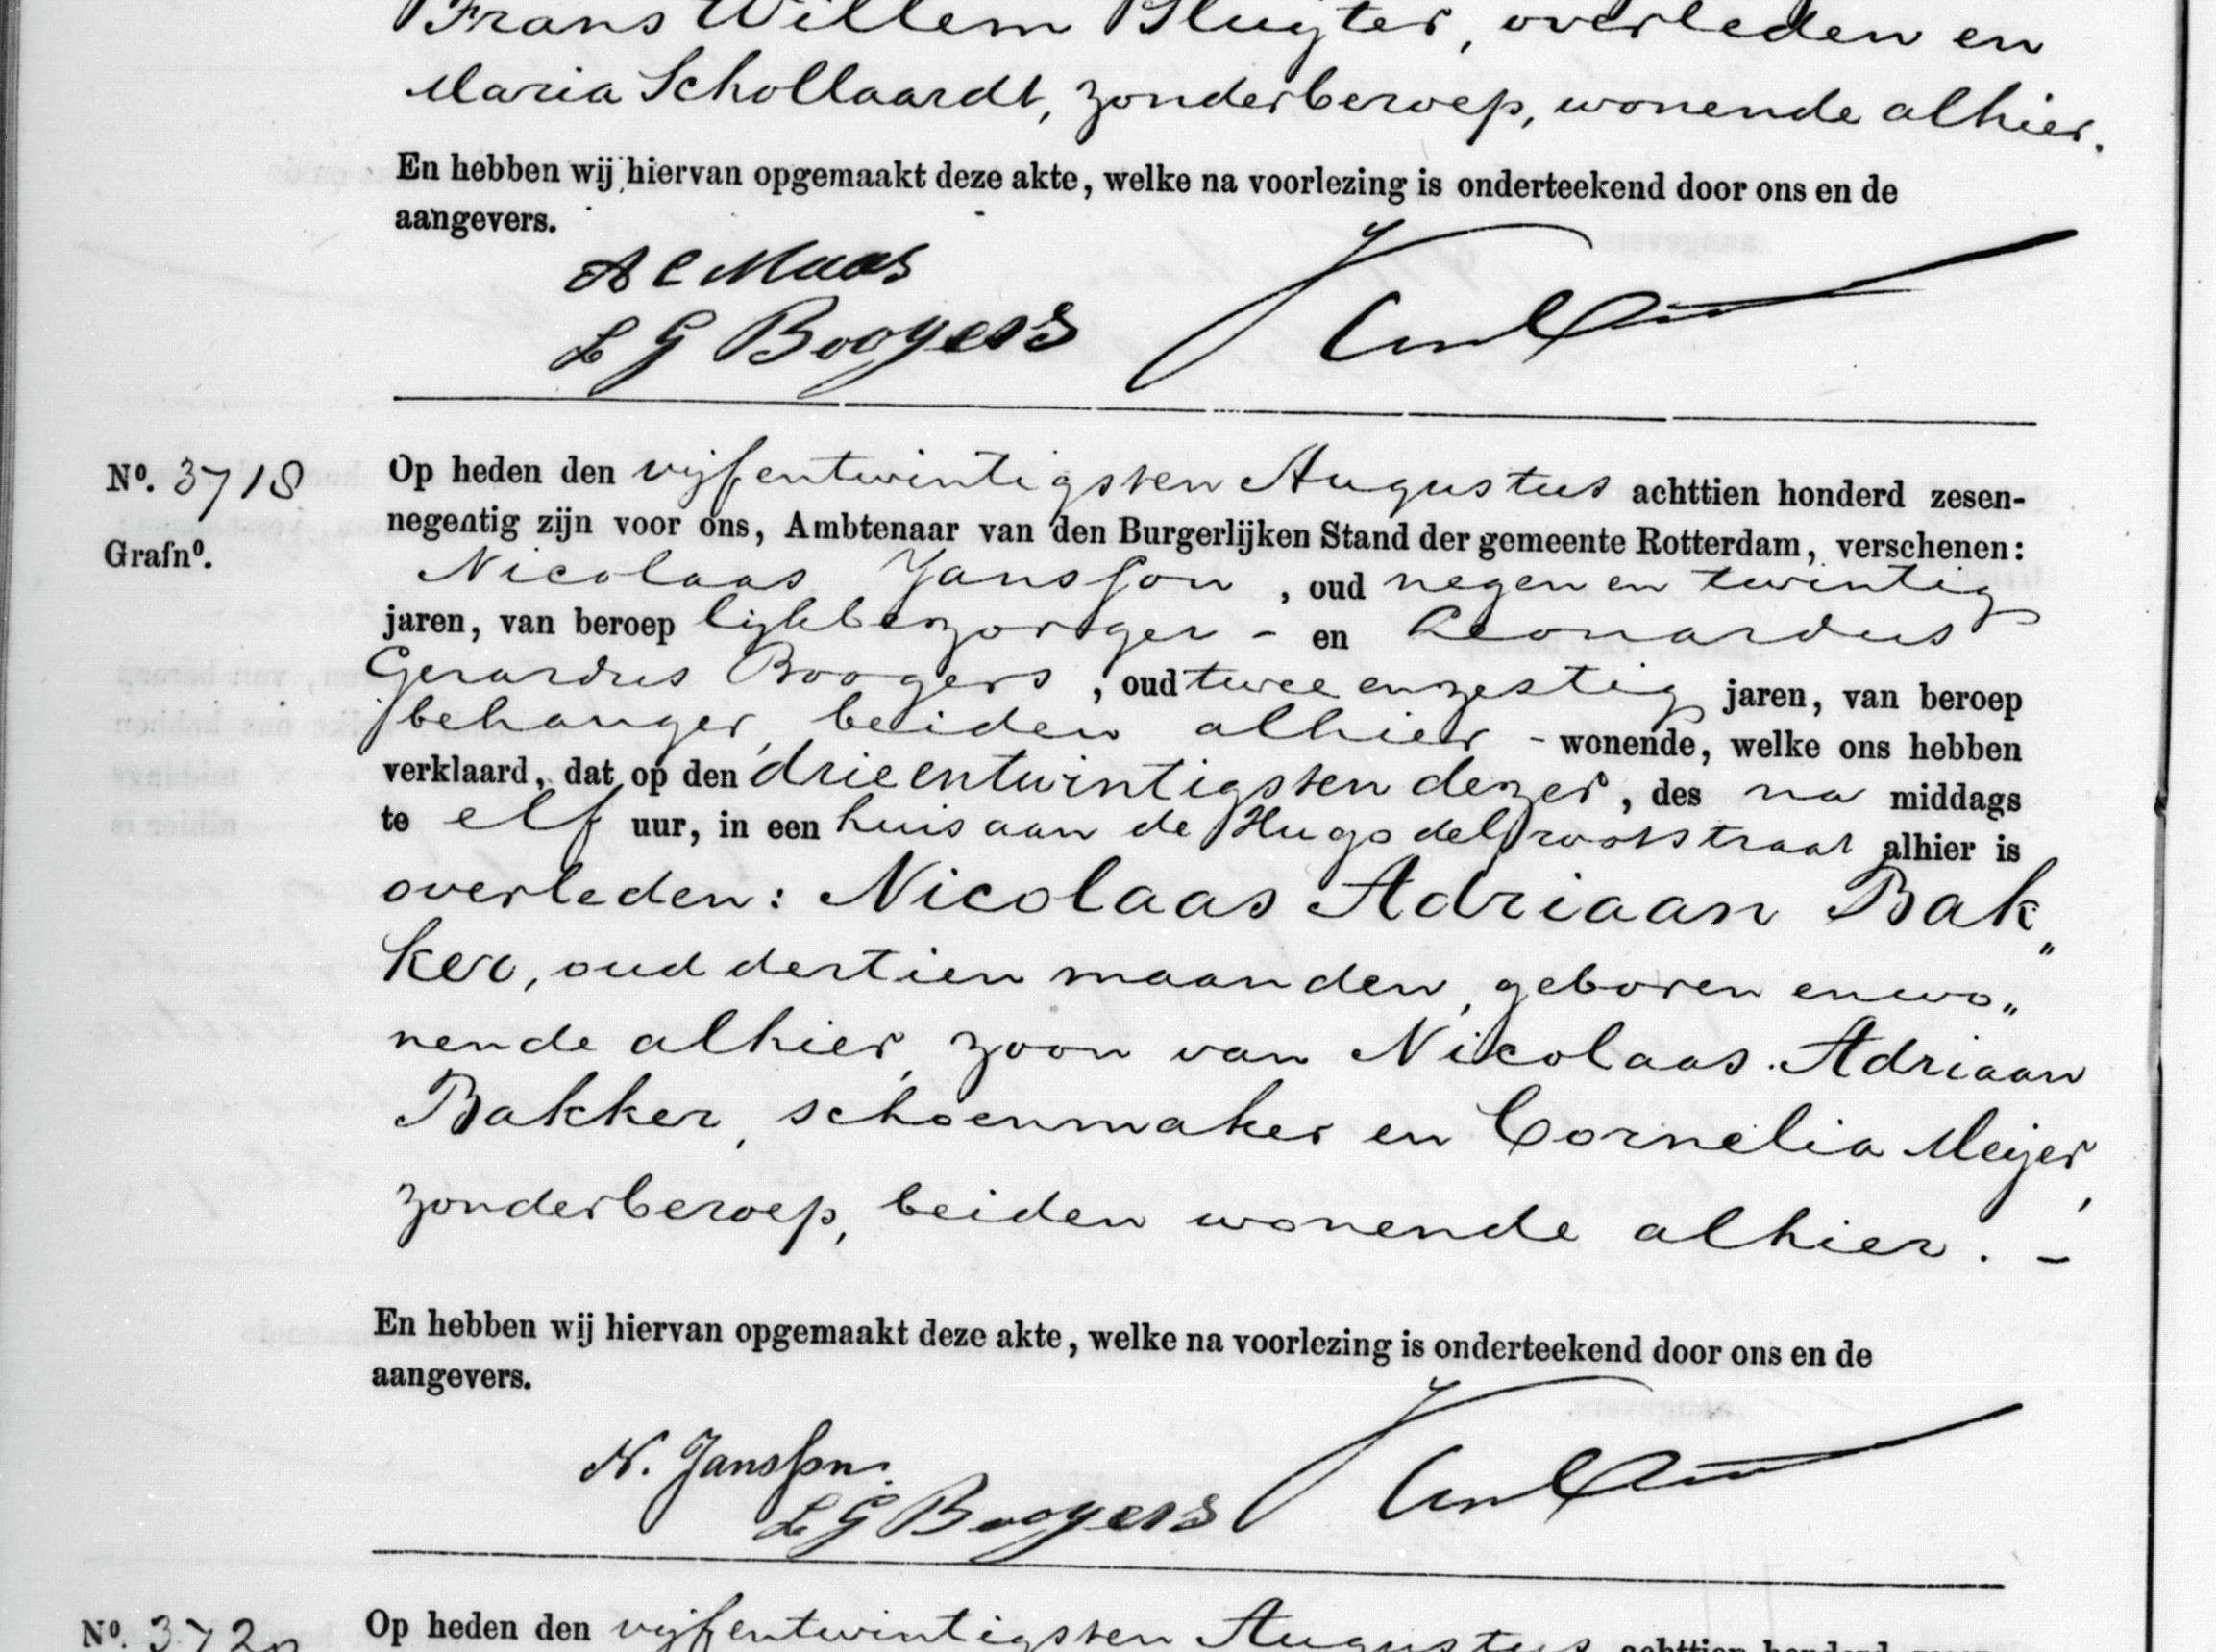 Frans Willem Sluijter, overleden en
Maria Schollaardt, zonder beroep, wonende alhier.
En hebben wij hiervan opgemaakt deze akte, welke na voorlezing is onderteekend door ons en de
aangevers.
A C Maas
L G Boogers
Nº. 3718
Grafnº.
Op heden den vijfentwintigsten Augustus achttien honderd zesen-
negentig zijn voor ons, Ambtenaar van den Burgerlijken Stand der gemeente Rotterdam, verschenen:
Nicolaas Jansson, oud negen en twintig
jaren, van beroep lijkbezorger - en Leonardus
Gerardus Boogers, oud twee en zestig jaren, van beroep
behanger, beiden alhier - wonende, welke ons hebben
verklaard, dat op den drieentwintigsten dezer, des na middags
te elf uur, in een huis aan de Hugo de Grootstraat alhier is
overleden: Nicolaas Adriaan Bak„
ker, oud dertien maanden, geboren en wo„
nende alhier, zoon van Nicolaas Adriaan
Bakker, schoenmaker en Cornelia Meijer,
zonder beroep, beiden wonende alhier. -
En hebben wij hiervan opgemaakt deze akte, welke na voorlezing is onderteekend door ons en de
aangevers.
N. Jansson.
L G Boogers
Nº. 372
Op heden den vijfentwintigsten Augustus achttien honderd zesen-